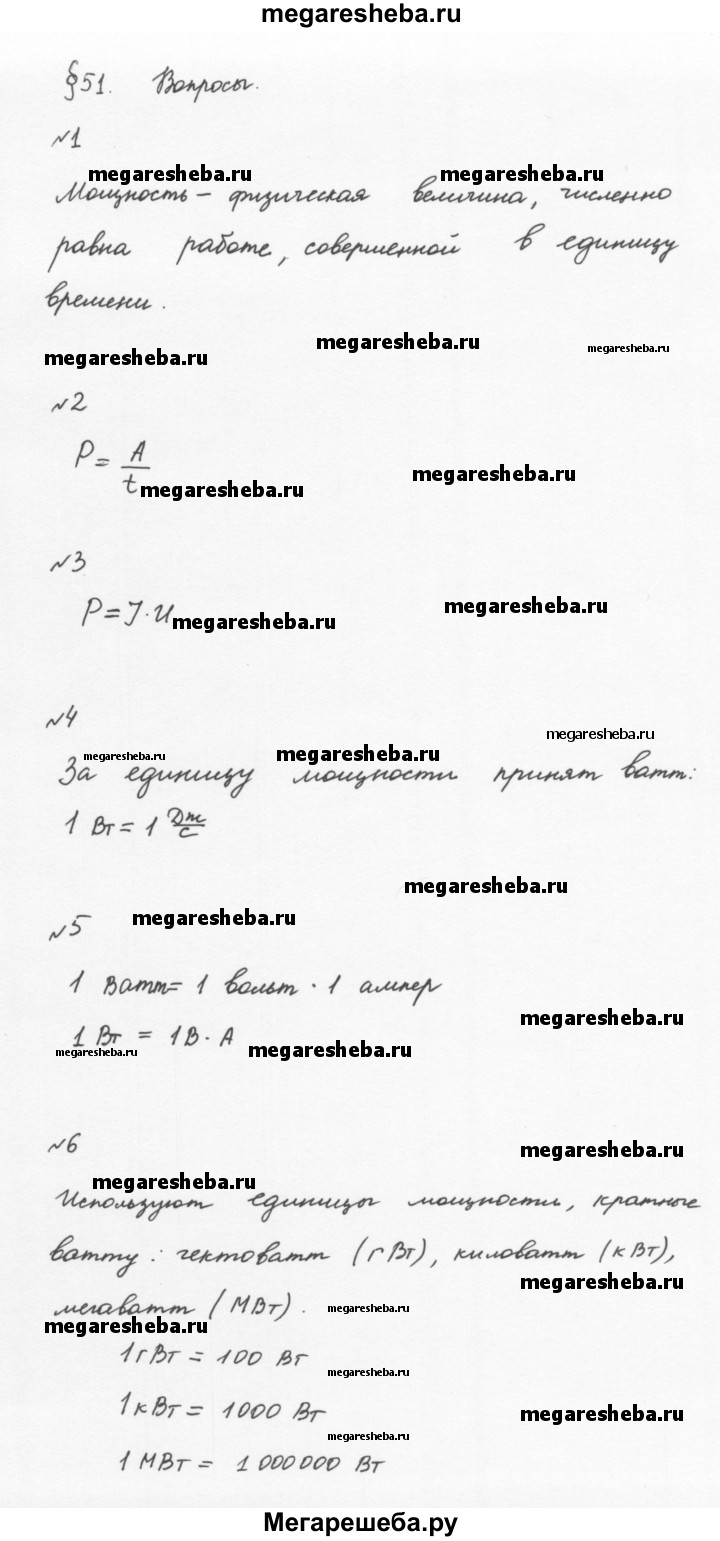 megaresheba.ru
§51. Вопросы.
№1
megaresheba.ru megaresheba.ru
Мощность – физическая величина, численно
равна работе, совершенной в единицу
времени.
megaresheba.ru megaresheba.ru megaresheba.ru
№2
P = A/t
megaresheba.ru megaresheba.ru
№3
P = J · U
megaresheba.ru megaresheba.ru
№4
megaresheba.ru megaresheba.ru megaresheba.ru
За единицу мощности принят ватт:
1 Вт = 1 Дж/с
megaresheba.ru
№5 megaresheba.ru
1 Ватт = 1 вольт · 1 ампер
megaresheba.ru
1 Вт = 1В · А
megaresheba.ru megaresheba.ru
№6 megaresheba.ru
megaresheba.ru
Используют единицы мощности, кратные
ватту: гектоватт (гВт), киловатт (кВт),
megaresheba.ru
мегаватт (МВт). megaresheba.ru
megaresheba.ru
1гВт = 100 Вт
megaresheba.ru
1кВт = 1000 Вт megaresheba.ru
megaresheba.ru
1 МВт = 1 000 000 Вт
Мегарешеба.ру